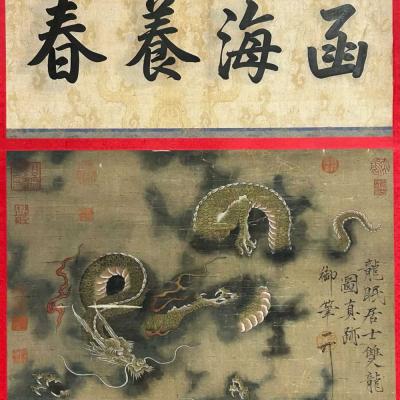 函海養春
龍眠居士雙龍
圖真跡
御筆